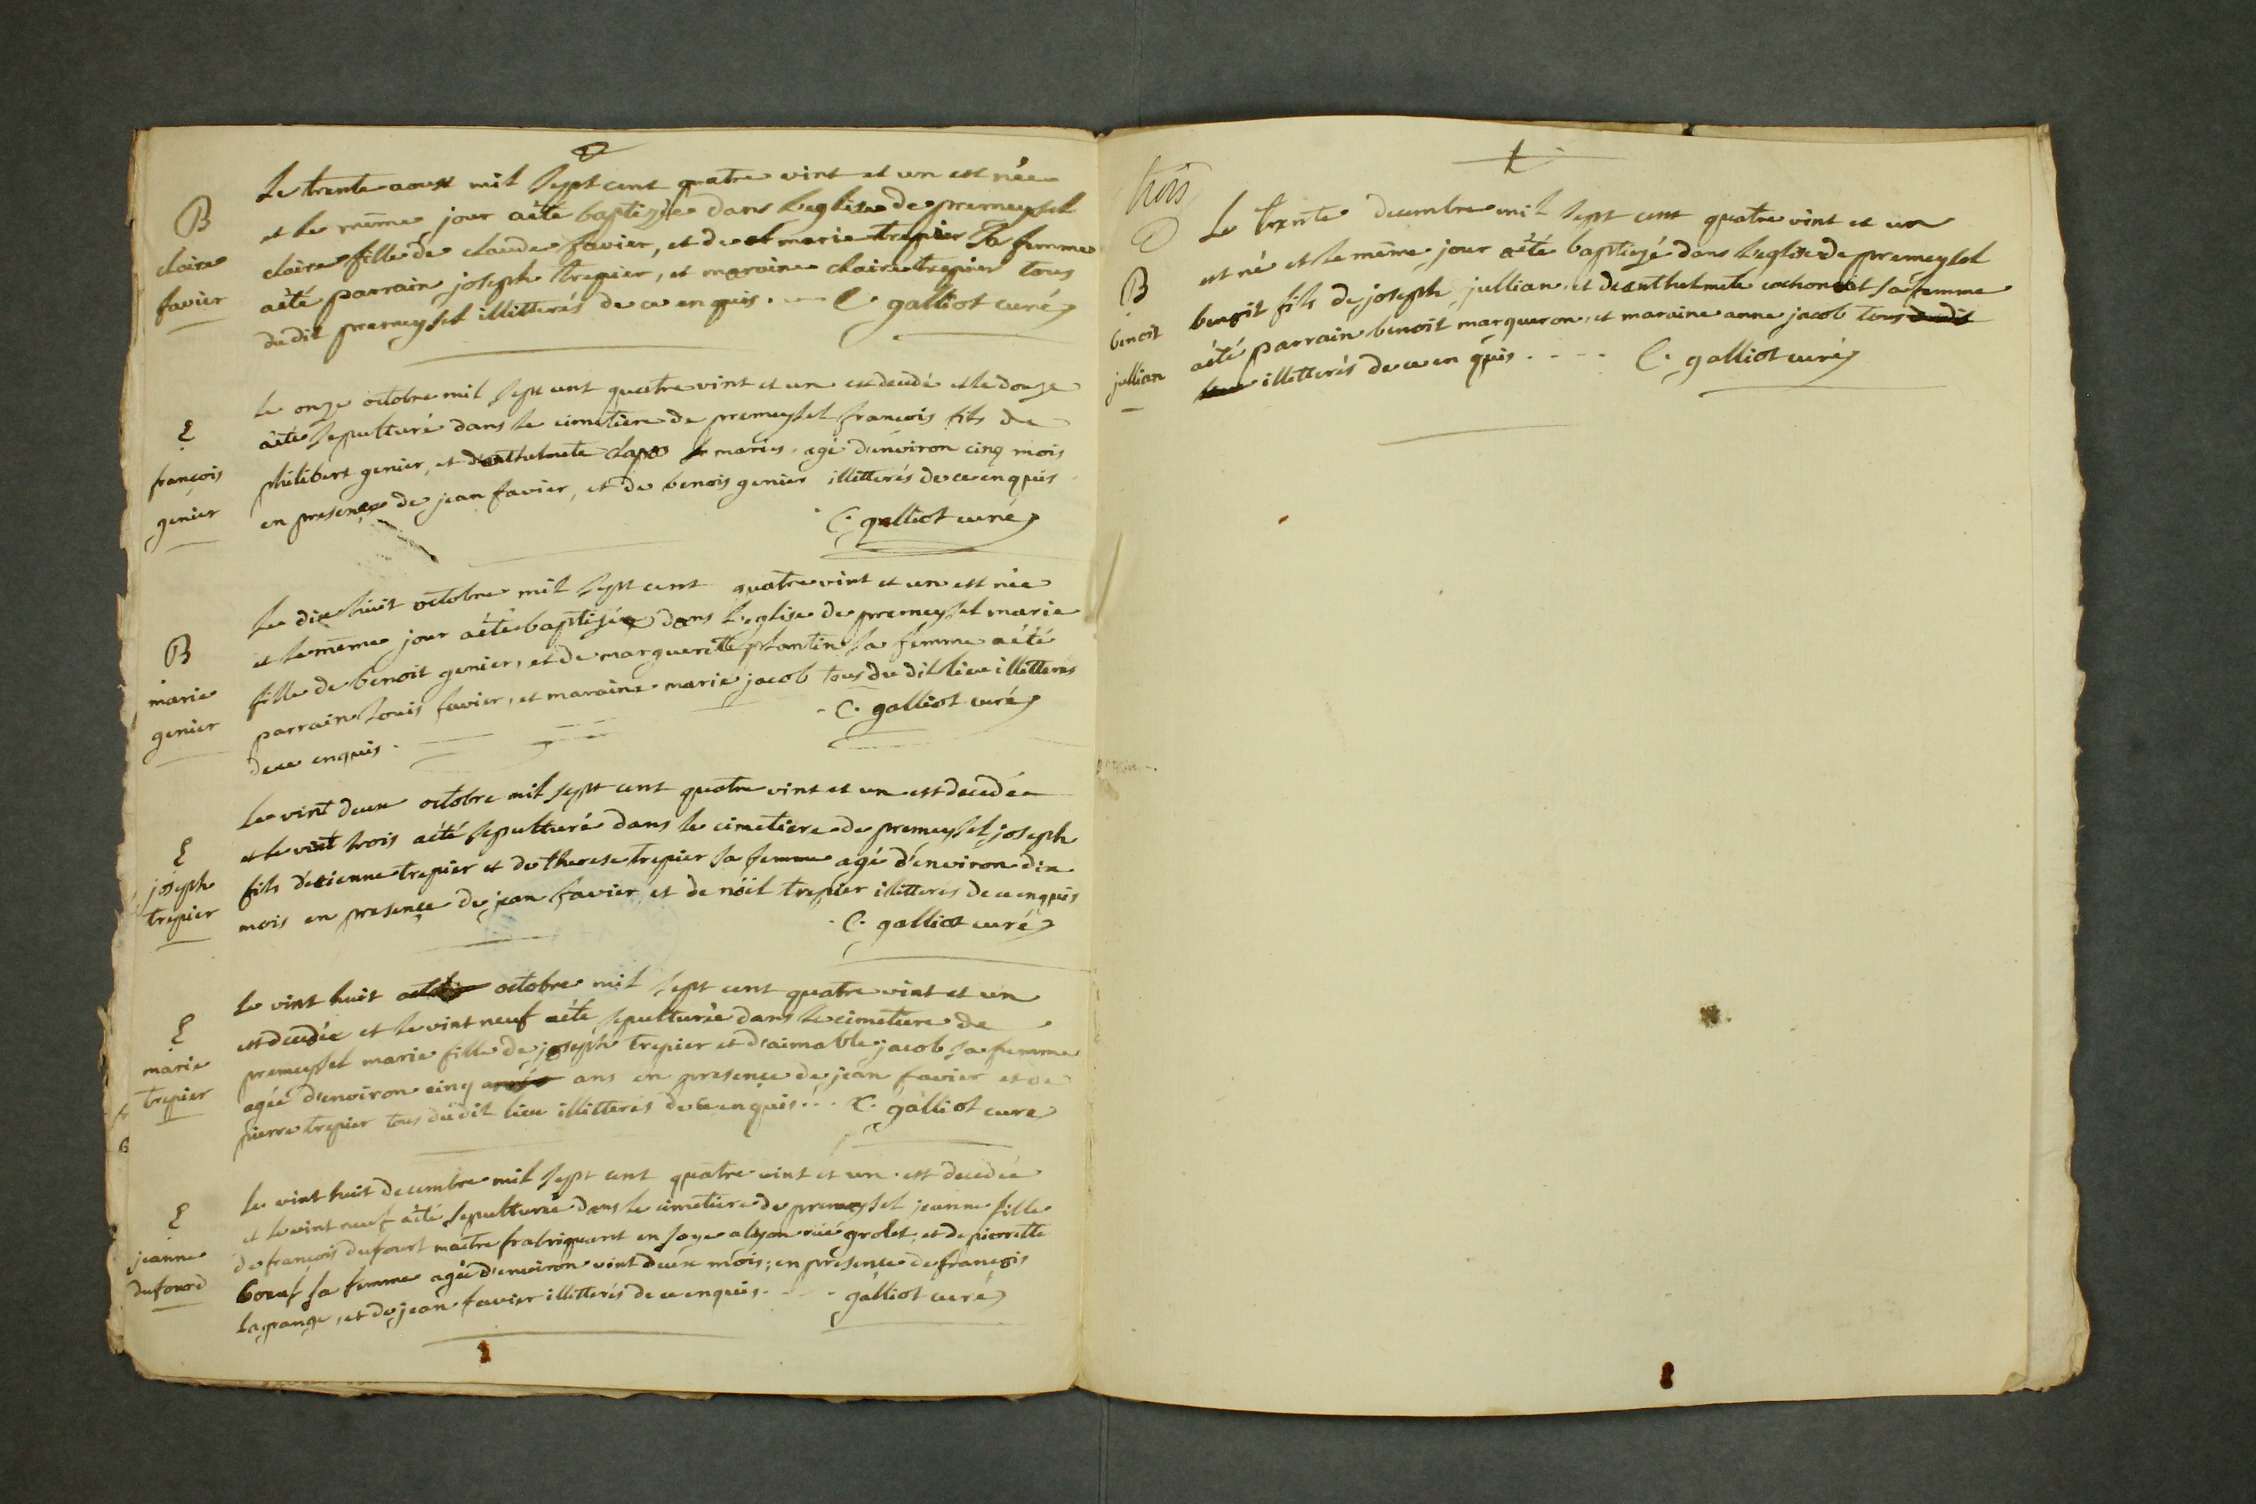 B
claire
favier
Le trente aoust mil sept cent quatre vint et un est née
et le même jour aété baptizée dans l'eglise de premeysel
claire fille de claude favier, et de marie trepier sa femme
aété parrain joseph trepier, et maraine claire trepier tous
du dit premeysel illitterés de ce enquis. C. galliot curé
E
françois
genier
Le onze octobre mil sept cent quatre vint et un est decedé et le douze
aété sepulturé dans le cimetiere de premeysel françois fils de
philibert genier, et d'anthelmete mariés, agé d'environ cinq mois
en presençe de jean favier, et de benois genier illitterés de ce enquis
C. galliot curé
B
marie
genier
Le dix huit octobre mil sept cent quatre vint et un est née
et le même jour aété baptizée dans l'eglise de premeysel marie
fille de benoit genier, et de margueritte plantin sa femme aété
parrain louis favier, et maraine marie jacob tous du dit lieu illitterés
de ce enquis. C. galliot curé
E
joseph
trepier
Le vint deux octobre mil sept cent quatre vint et un est decedée
et le vint trois aété sepulturé dans le cimetiere de premeysel joseph
fils d'etienne trepier et de therese trepier sa femme agé d'environ dix
mois en presençe de jean favier, et de nöel trepier illitterés de ce enquis
C. galliot curé
E
marie
trepier
Le vint huit octobre mil sept cent quatre vint et un
est decedée et le vint neuf aété sepulturée dans le cimetiere de
premeysel marie fille de joseph trepier et d'aimable jacob sa femme
agée d'environ cinq ans en presençe de jean favier et de
pierre trepier tous du dit lieu illitterés de ce enquis... C. galliot curé
E
jeanne
dufourd
Le vint huit decembre mil sept cent quatre vint et un est decedée
et le vint neuf aété sepulturée dans le cimetiere de premeysel jeanne fille
de francois dufourt maitre frabriquent en soye a lyon rüe grolet, et de pierrette
boeuf sa femme agée d'environ vint deux mois; en presençe de françois
lagrange, et de jean favier illitterés de ce enquis. - - - galliot curé
trois
B
benoit
jullian
Le trente decembre mil sept cent quatre vint et un
est né et le même jour aété baptizé dans l'eglise de premeysel
benoit fils de joseph jullian, et d'anthelmete cochonat sa femme
aété parrain benoit marqueron, et maraine anne jacob tous
illitterés de ce en quis. - - - C. galliot curé